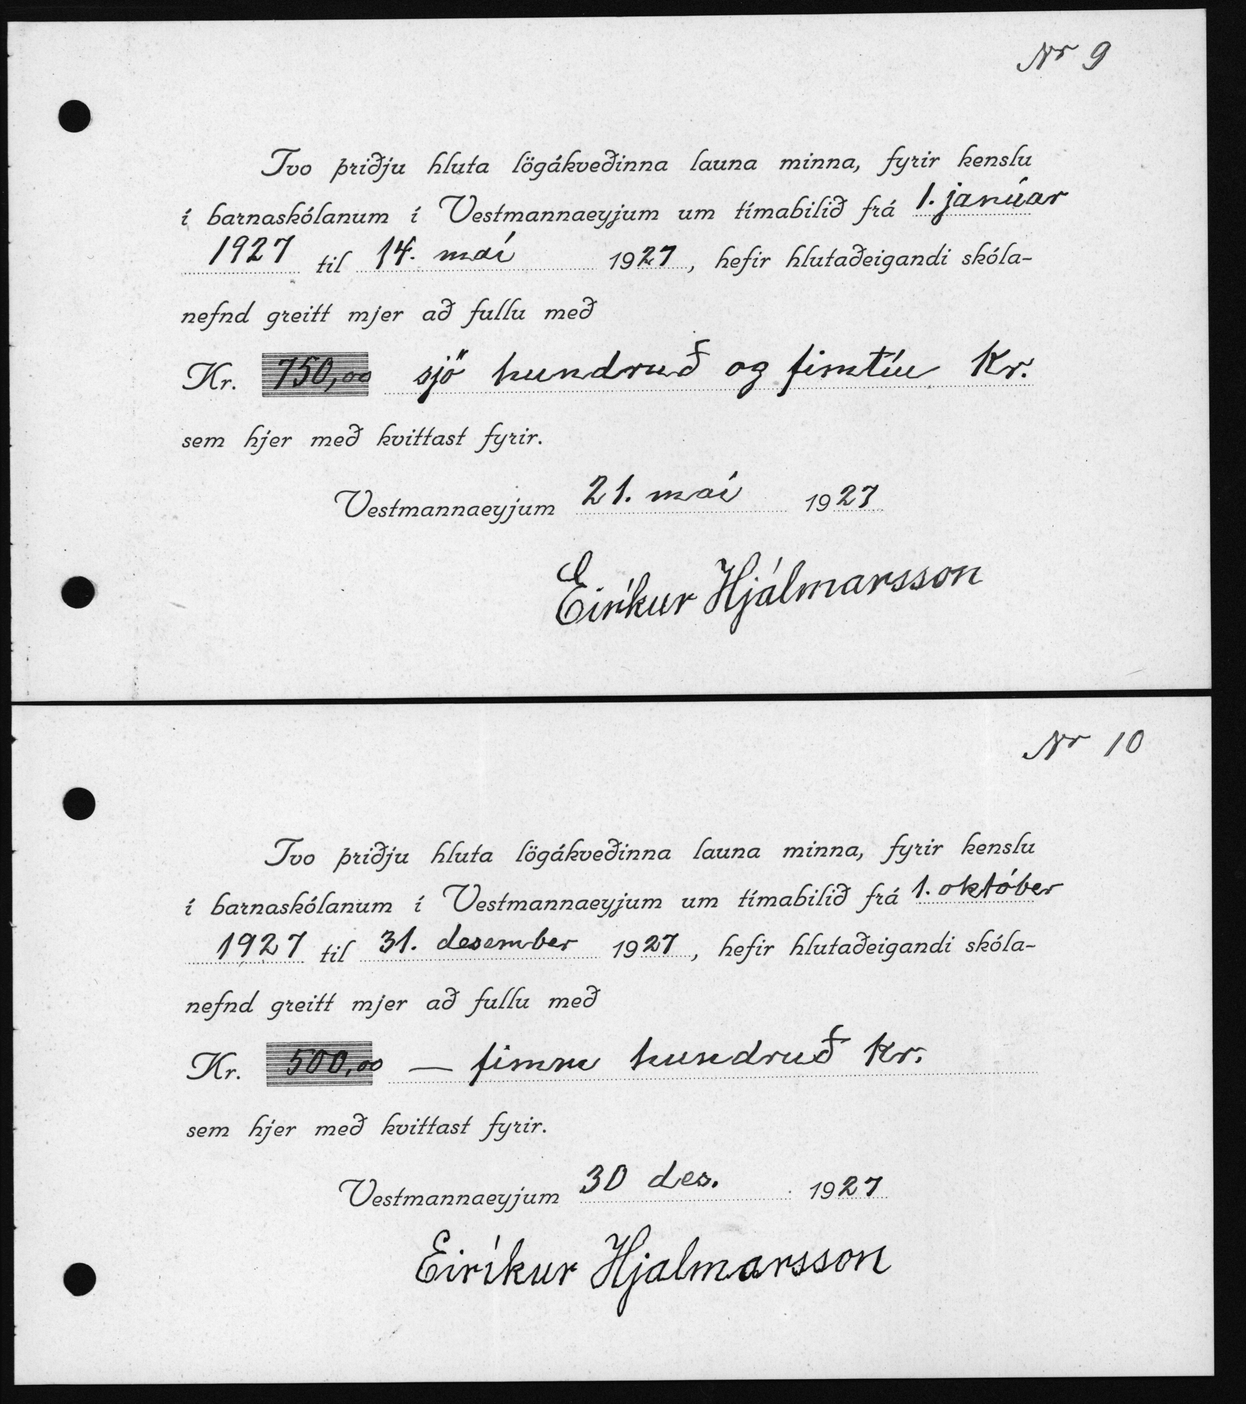 Nr 9
Tvo þriðju hluta lögákveðinna launa minna, fyrir kenslu
í barnaskólanum í Vestmannaeyjum um tímabilið frá 1. janúar
1927 til 14. maí 1927, hefir hlutaðeigandi skóla-
nefnd greitt mjer að fullu með
Kr. 750,00 sjö hundruð og fimtíu Kr.
sem hjer með kvittast fyrir.
Vestmannaeyjum 21. maí 1927
Eiríkur Hjálmarsson
Nr 10
Tvo þriðju hluta lögákveðinna launa minna, fyrir kenslu
í barnaskólanum í Vestmannaeyjum um tímabilið frá 1. október
1927 til 31. desember 1927, hefir hlutaðeigandi skóla-
nefnd greitt mjer að fullu með
Kr. 500,00 — fimm hundruð Kr.
sem hjer með kvittast fyrir.
Vestmannaeyjum 30 des. 1927
Eiríkur Hjalmarsson